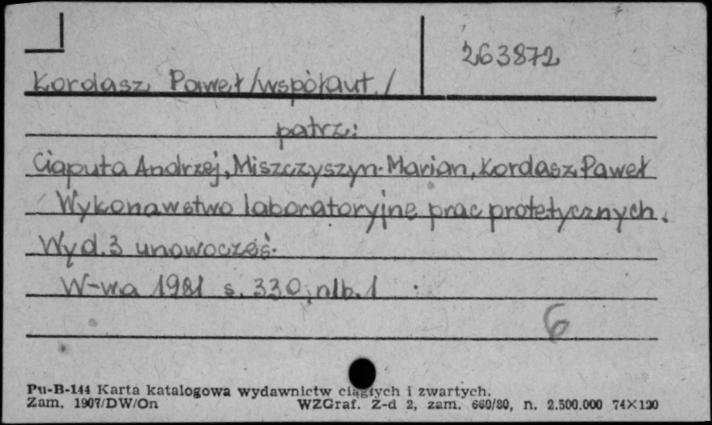 263872
Kordasz, Paweł /współaut./
patrz:
Ciaputa Andrzej, Miszczyszyn Marian, Kordasz Paweł
Wykonawstwo laboratoryjne prac protetycznych.
Wyd. 3 unowocześ.
W-wa 1981 s. 330, nlb. 1
6
Pu-B-144 Karta katalogowa wydawnictw ciągłych i zwartych.
Zam. 1907/DW/On WZGraf. Z-d 2, zam. 660/80, n. 2.500.000 74×120